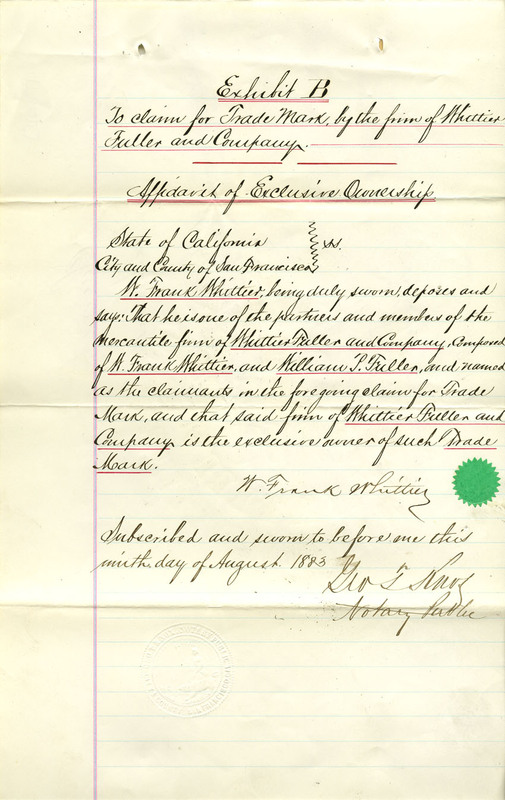 Exhibit B
To claim for Trade Mark, by the firm of Whittier
Fuller and Company.
Affidavit of Exclusive Ownership.
State of California } ss.
City and County of San Francisco
W. Frank Whittier, being duly sworn, deposes and
says: That he is one of the partners and members of the
mercantile firm of Whittier Fuller and Company, composed
of W. Frank Whittier, and William P. Fuller, and named
as the claimants in the foregoing claim for Trade
Mark, and that said firm of Whittier Fuller and
Company is the exclusive owner of such Trade
Mark.
W. Frank Whittier
Subscribed and sworn to before me this
ninth day of August 1883
Geo T Knox
Notary Public